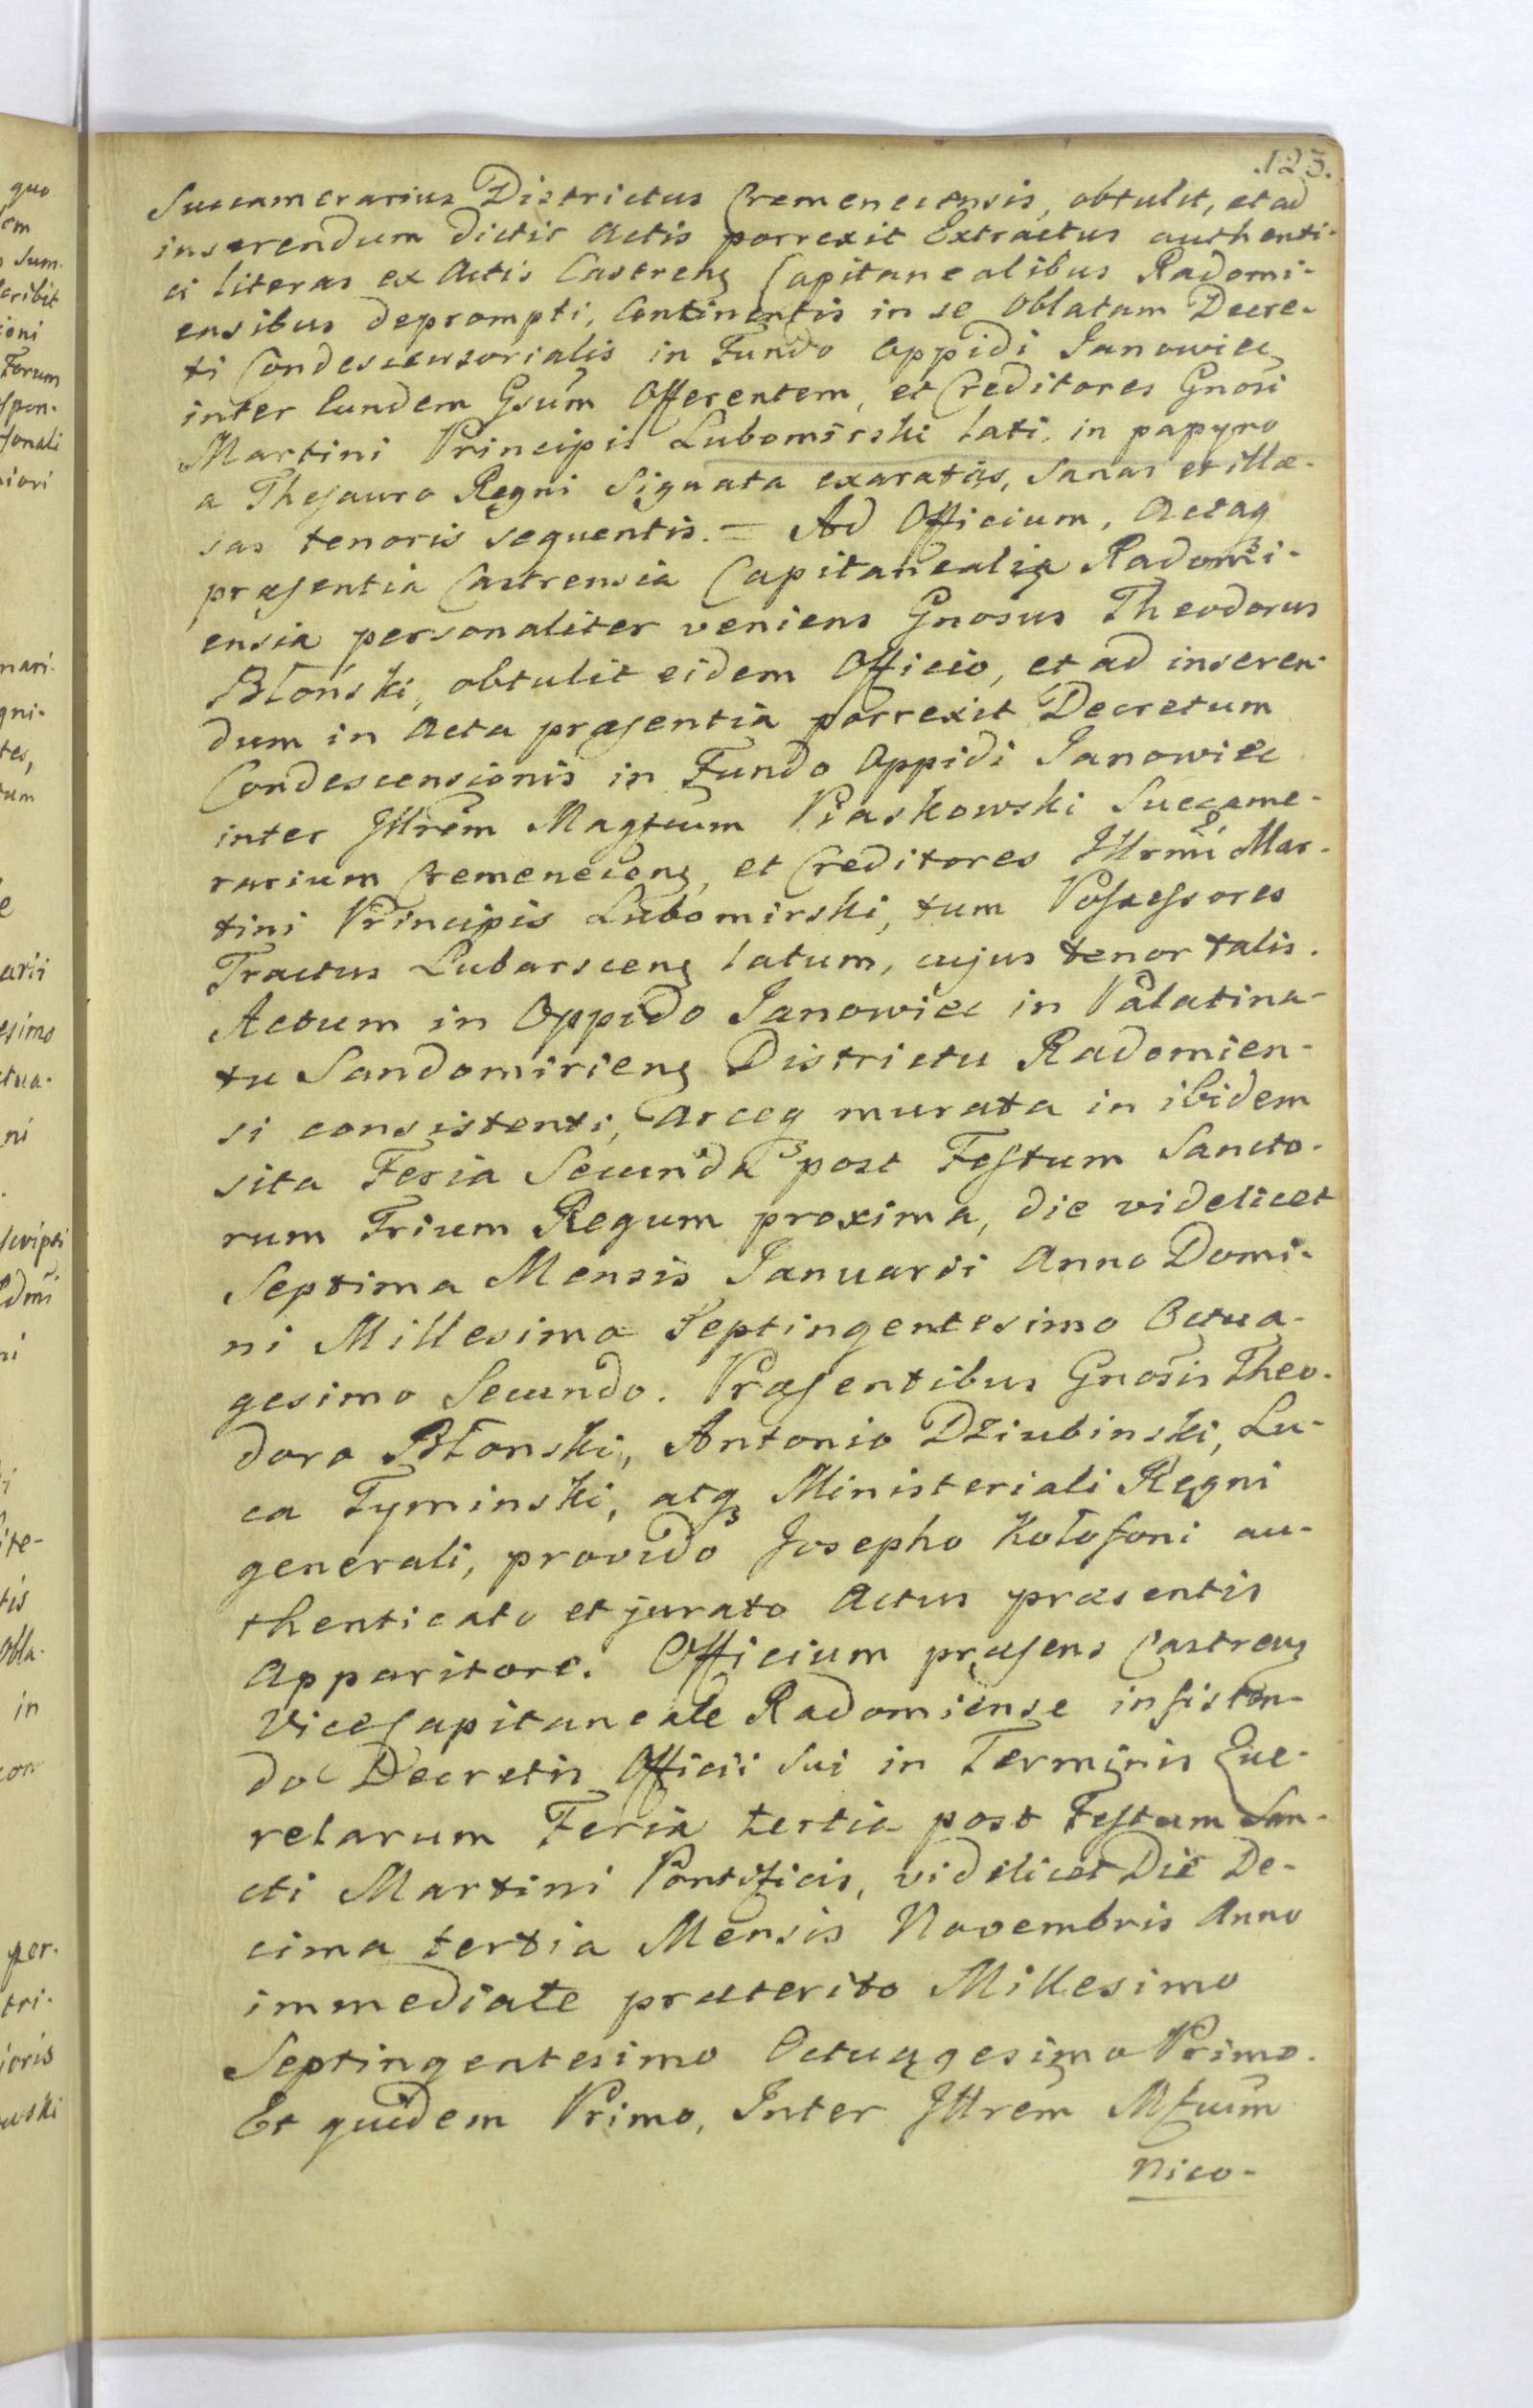 123.
Succamerarius Districtus Cremenecensis, obtulit, et ad
inserendum dictis Actis porrexit Extractus authenti-
ci literas ex Actis Castreng Capitanealibus Radomi-
ensibus deprompti, Continentis in se Oblatam Decre-
ti Condescensorialis in Fundo Oppidi Janowiec
inter Eundem Gsum Offerentem, et Creditores Gnosi
Martini Principis Lubomirski lati, in papyro
a Thesauro Regni Signata exaratas, Sanas et illæ-
sas tenoris sequentis. = Ad Officium, Actaq
præsentia Castrensia Capitanealia Radomi-
ensia personaliter veniens Gnosus Theodorus
Błoński, obtulit eidem Officio, et ad inseren-
dum in Acta præsentia porrexit Decretum
Condescensionis in Fundo Oppidi Janowiec
inter Illrem Magfcum Piaskowski Succame-
rarium Cremeneceng, et Creditores Illrmi Mar-
tini Principis Lubomirski, tum Possessores
Tractus Lubarsceng latum, cujus tenor talis.
Actum in Oppido Janowiec in Palatina-
tu Sandomirieng Districtu Radomien-
si consistenti, Arceq murata in ibidem
sita Feria Secunda post Festum Sancto-
rum Trium Regum proxima, die videlicet
Septima Mensis Januarii Anno Domi-
ni Millesimo Septingentesimo Octua-
gesimo Secundo. Præsentibus Gnosis Theo-
doro Błonski, Antonio Dziubinski, Lu-
ca Tyminski, atq Ministeriali Regni
generali, provido Josepho Kołofoni au-
thenticato et jurato Actus præsentis
Apparitore. Officium præsens Castreng
ViceCapitaneale Radomiense insisten-
do Decretis Officii Sui in Terminis Que-
relarum Feria tertia post Festum San-
cti Martini Pontificis, videlicet Die De-
cima tertia Mensis Novembris Anno
immediate præterito Millesimo
Septingentesimo Octuagesimo Primo.
Et quidem Primo, Inter Illrem Mfcum
Nico-